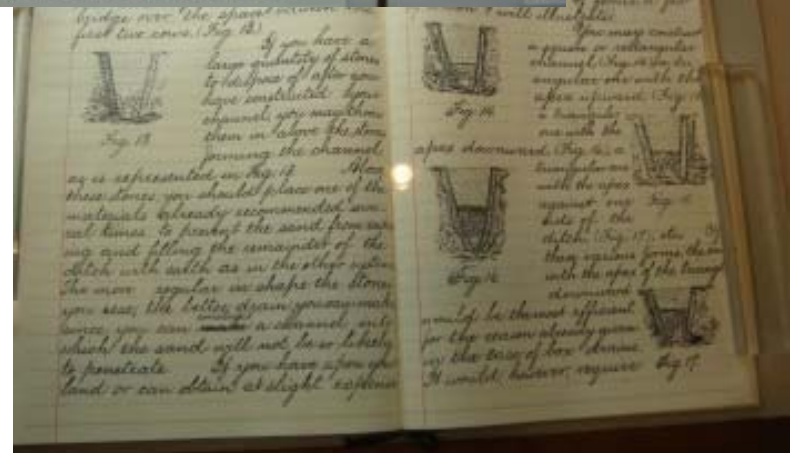 bridge over the space between the
first two rows. (Fig. 13.)
If you have a
large quantity of stones
to dispose of after you
have constructed your
channel, you may throw
them in above the stones
forming the channel
Fig. 13
as is represented in Fig. 13. Along
these stones, you should place one of the
materials already recommended sev-
eral times to prevent the sand from
ing and filling the remainder of the
ditch with earth as in the other
The more regular in shape the stones
you use, the better drain you can make
since you can a channel into
which the sand will not be so likely
to penetrate. If you have upon
land or can obtain at slight expense
I will illustrate.
You may construct
a square or rectangular
channel (Fig. 14)
angular one with the
apex upward (Fig.
Fig. 14
a triangular
one with the
apex downward, (Fig. 16), a
triangular one
with the apex
against one
side of the
Fig. 15
ditch (Fig. 17), etc. Of
these various forms, the
with the apex of the
downward
Fig. 16
would be the most efficient
for the reason already given
in the case of box drains
It would, however, require
Fig. 17